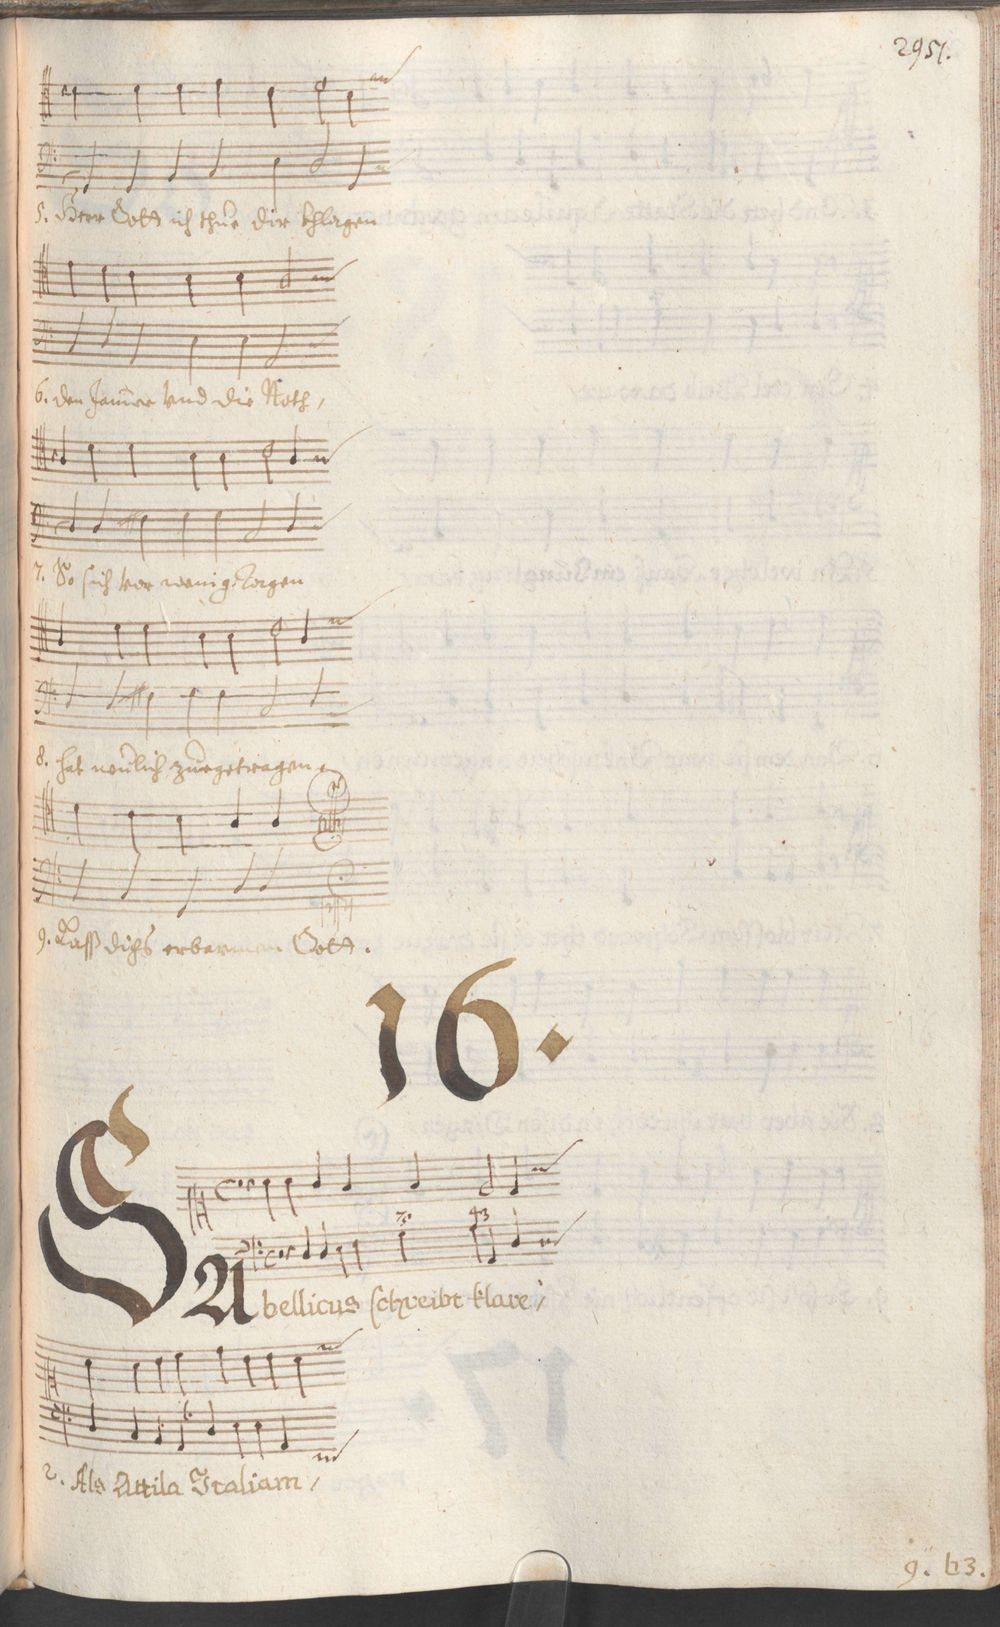 2951.
5. Herr Gott ich thue dir khlagen
6. den Jam̄er vnd die Noth,
7. So sich vor wenig Tagen
8. hat neulich zuegetragen,
9. Lass dichs erbarmen Gott.
16.
SAbellicus schreibt klare,
7. 43
2. Als Attila Italiam,